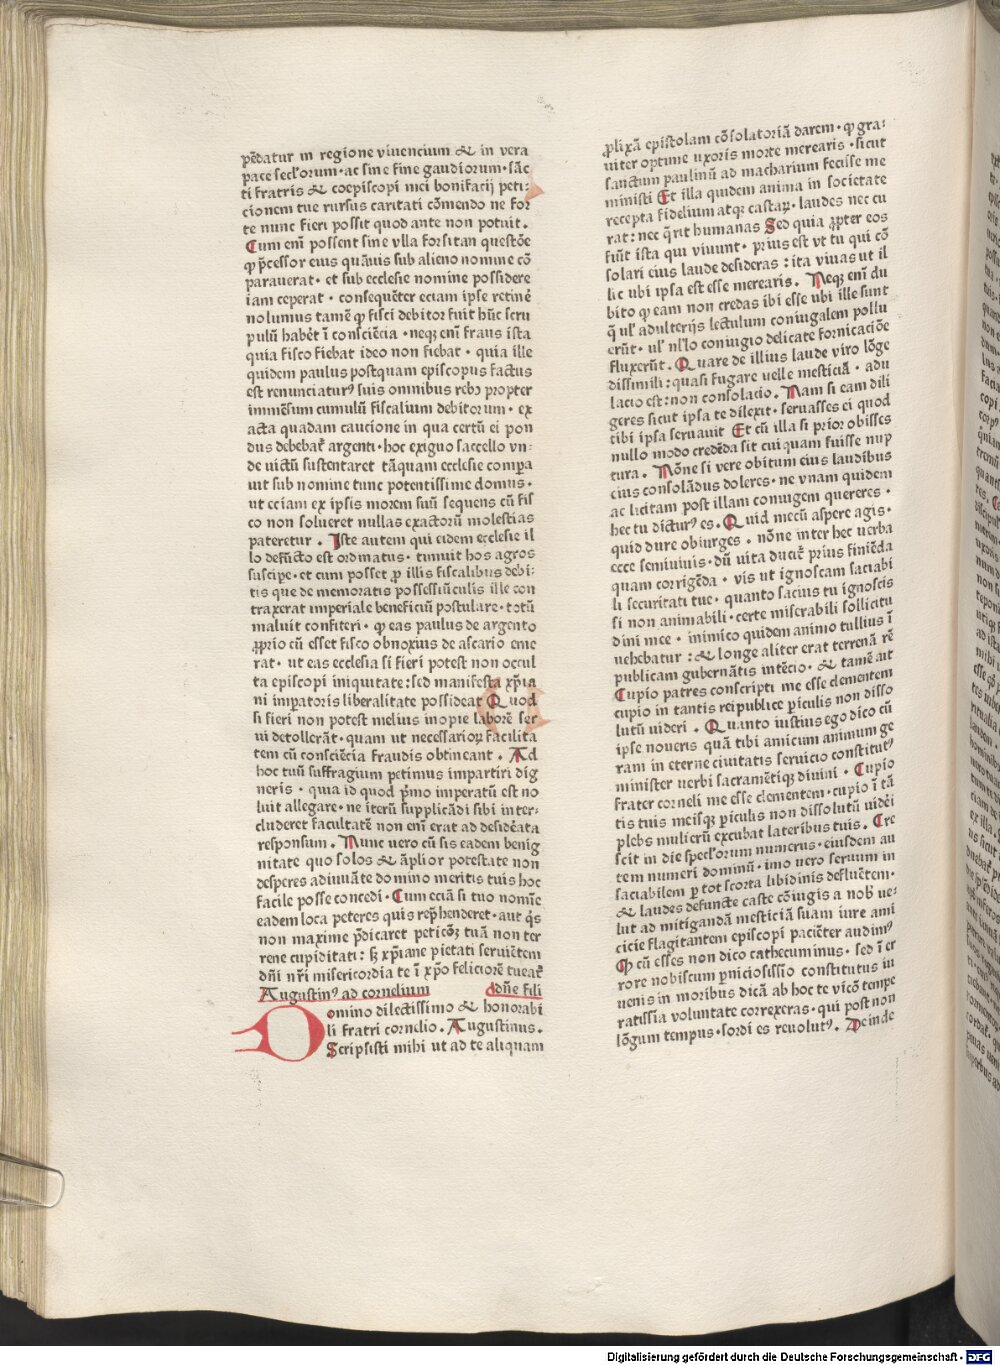 pēdatur in regione viuencium & in vera
pace seclorum · ac sine fine gaudiorum · sāc
ti fratris & coepiscopi mei bonifacij peti-
cionem tue rursus caritati cōmendo ne for
te nunc fieri possit quod ante non potuit .
Cum enī possent sine vlla forsitan questōe
ꝙ p̄cessor eius quāuis sub alieno nomine cō
parauerat · et sub ecclesie nomine possidere
iam ceperat · consequēter eciam ipse retinē
nolumus tamē ꝙ fisci debitor fuit hūc scru
pulū habēt ī consciēcia · neqȝ enī fraus ista
quia fisco fiebat ideo non fiebat · quia ille
quidem paulus postquam episcopus factus
est renunciaturꝰ suis omnibus rebȝ propter
immēsum cumulū fiscalium debitorum · ex
acta quadam caucione in qua certū ei pon
dus debebat argenti · hoc exiguo saccello vn-
de victū sustentaret tāquam ecclesie compa
uit sub nomine tunc potentissime domus ·
ut eciam ex ipsis morem suū sequens cū fis
co non solueret nullas exactorū molestias
pateretur . Iste autem qui eidem ecclesie il
lo defūcto est ordinatus · timuit hos agros
suscipe · et cum posset ꝓ illis fiscalibus debi-
tis que de memoratis possessiūculis ille con
traxerat imperiale beneficiū postulare · totū
maluit confiteri · ꝙ eas paulus de argento
ꝓprio cū esset fisco obnoxius de ascario eme
rat · ut eas ecclesia si fieri potest non occul
ta episcopi iniquitate : sed manifesta xp̄ia
ni imp̄atoris liberalitate possideat Quod
si fieri non potest melius inopie laborē ser
ui dei tollerāt · quam ut necessarioꝝ facilita
tem cū consciēcia fraudis obtineant . Ad
hoc tuū suffragium petimus impartiri dig
neris · quia id quod p̄mo imperatū est no
luit allegare · ne iterū supplicādi sibi inter-
cluderet facultatē non enī erat ad desidēata
responsum . Nunc vero cū sis eadem benig
nitate quo solos & āplior potestate non
desperes adiuuāte domino meritis tuis hoc
facile posse concedi · Cum eciā si tuo nomīe
eadem loca peteres quis rep̄henderet · aut q̄s
non maxime p̄dicaret peticōȝ tuā non ter
rene cupiditati : sȝ xp̄iane pietati seruiētem
dn̄i nr̄i misericordia te ī xp̄o feliciorē tueat
Augustinꝰ ad cornelium dōne fili
Domino dilectissimo & honorabi
li fratri cornelio . Augustinus .
Scripsisti mihi ut ad te aliquam
ꝓlixā epistolam cōsolatoriā darem · ꝙ gra-
uiter optime uxoris morte merearis · sicut
sanctum paulinū ad macharium fecisse me
ministi Et illa quidem anima in societate
recepta fidelium atqȝ castaꝝ · laudes nec cu
rat : nec q̄rit humanas Sed quia ꝓpter eos
fiūt ista qui viuunt · prius est vt tu qui cō
solari eius laude desideras : ita viuas ut il
lic ubi ipsa est esse merearis . Neqȝ enī du
bito ꝙ eam non credas ibi esse ubi ille sunt
q̄ ul' adulterijs lectulum coniugalem pollu
erūt · ul' nl'lo coniugio delicate fornicaciōe
fluxerūt . Quare de illius laude viro lōge
dissimili : quasi fugare uelle mesticiā · adu
lacio est : non consolacio . Nam si eam dili
geres sicut ipsa te dilexit · seruasses ei quod
tibi ipsa seruauit Et cū illa si prior obisses
nullo modo credēda sit cuiquam fuisse nup
tura . Nōne si vere obitum eius laudibus
eius consolādus doleres · ne vnam quidem
ac licitam post illam coniugem quereres ·
hec tu dicturꝰ es . Quid mecū aspere agis ·
quid dure obiurges . nōne inter hec uerba
ecce semiuiuis · dū vita ducit prius finiēda
quam corrigēda · vis ut ignoscam saciabi
li securitati tue · quanto sacius tu ignoscis
si non animabili · certe miserabili sollicitu
dini mee · inimico quidem animo tullius ī
uehebatur : & longe aliter erat terrenā rē
publicam gubernātis intēcio · & tamē ait
Cupio patres conscripti me esse clementem
cupio in tantis rei publice p̄iculis non disso
lutū uideri . Quanto iustius ego dico cū
ipse noueris quā tibi amicum animum ge
ram in eterne ciuitatis seruicio constitutꝰ
minister uerbi sacramētiqȝ diuini · Cupio
frater corneli me esse clementem · cupio ī tā
tis tuis meisqȝ p̄iculis non dissolutū uidēi
plebs mulierū excubat lateribus tuis . Cre
scit in die speclorum numerus · eiusdem au
tem numeri dominū · imo vero seruum in
saciabilem p̄ tot scorta libidinis defluētem ·
& laudes defuncte caste cōiugis a nob' ue-
lut ad mitigandā mesticiā suam iure ami
cicie flagitantem episcopi paciēter audimꝰ
Ꝙ cū esses non dico cathecuminus · sed ī er
rore nobiscum p̄niciosissio constitutus iu
uenis in moribus dicā ab hoc te vicō tempe
ratissia voluntate correxeras · qui post non
lōgum tempus · sordi es reuolutꝰ . Deinde
Digitalisierung gefördert durch die Deutsche Forschungsgemeinschaft - DFG